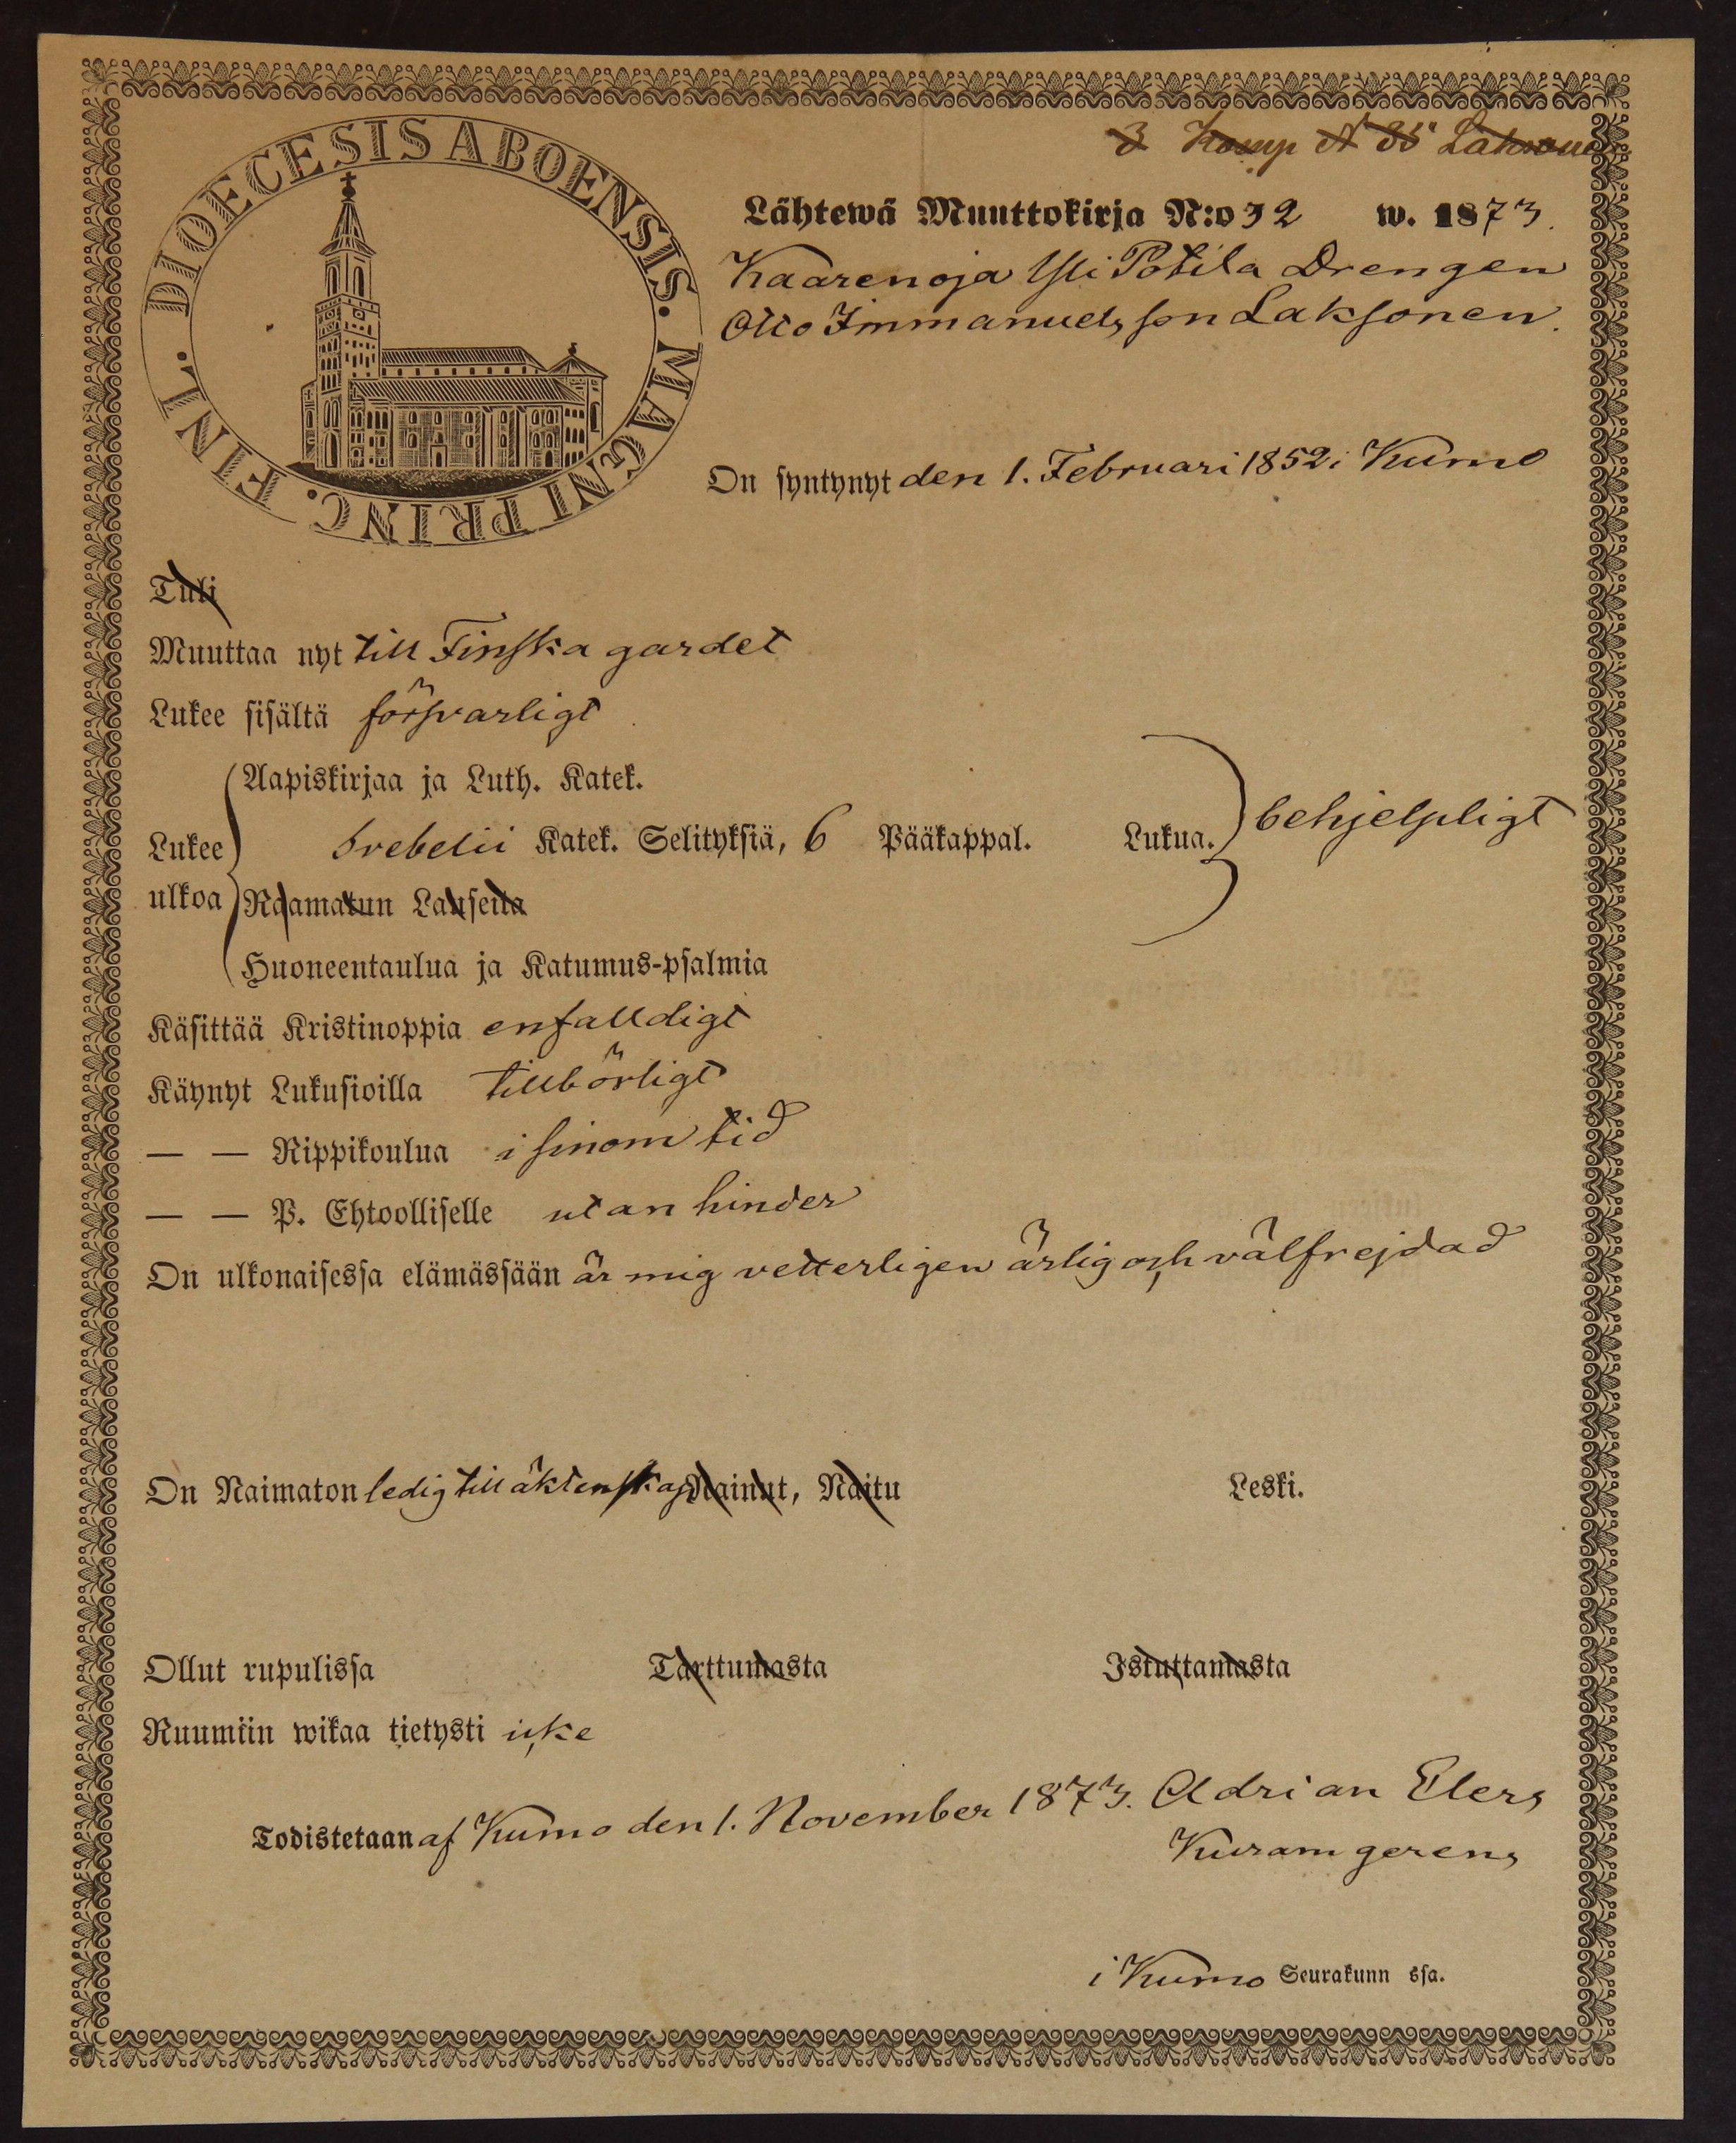 DIOECESIS ABOENSIS. MAGNI PRINC. FINL.
3 Komp N 35 Laksonen
Lähtewä Muuttokirja N:o 32 w. 1873.
Kaarenoja Yli Potila Drengen
Otto Immanuelsson Laksonen.
On syntynyt den 1. Februari 1852 i Kumo
Tuli
Muuttaa nyt till Finska gardet
Lukee sisältä försvarligt
Aapiskirjaa ja Luth. Katek.
Lukee Svebelii Katek. Selityksiä, 6 Pääkappal. Lukua. behjelpligt
ulkoa Raamatun Lauseita
Huoneentaulua ja Katumus-psalmia
Käsittää Kristinoppia enfalldigt
Käynyt Lukusioilla tillbörligt
— — Rippikoulua i sinom tid
— — P. Ehtoolliselle utan hinder
On ulkonaisessa elämässään är mig vetterligen ärlig och välfrejdad
On Naimaton ledig till äktenskap Nainut, Naitu Leski.
Ollut rupulissa Tarttumasta Istuttamasta
Ruumiin wikaa tietysti icke
Todistetaan af Kumo den 1. November 1873. Adrian Elers
Kuram gerens
i Kumo Seurakunn ssa.